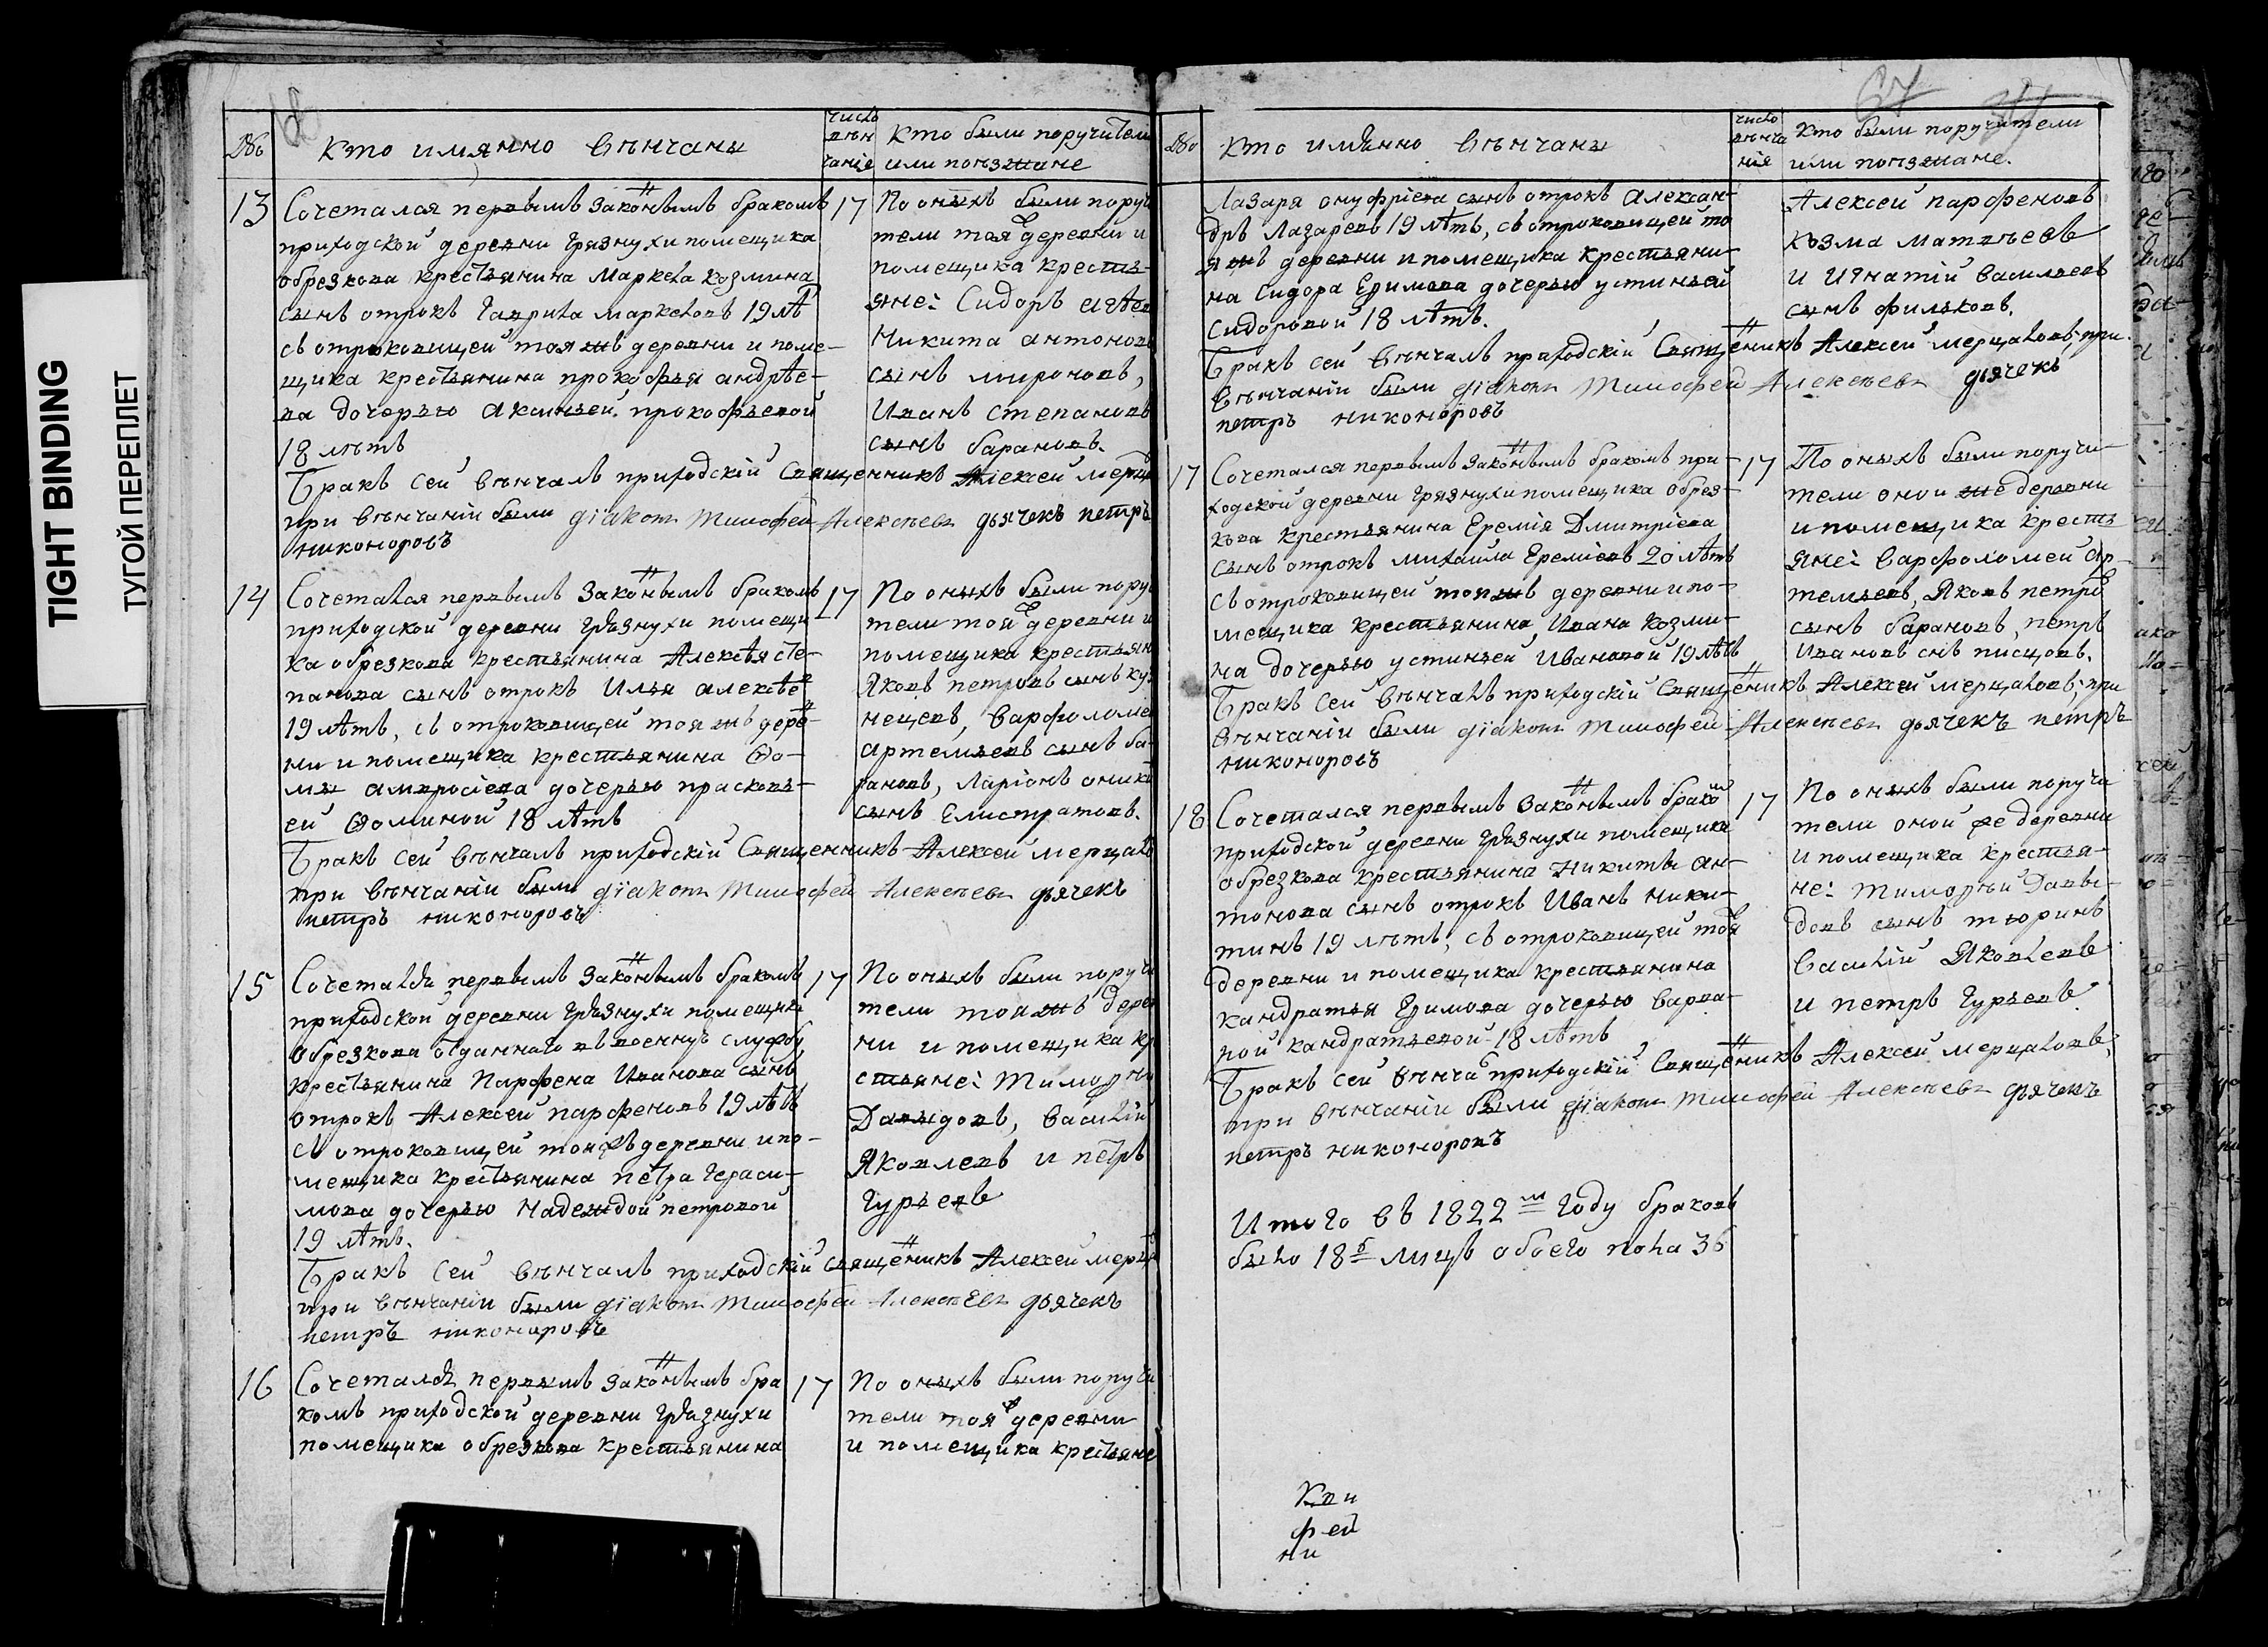 TIGHT BINDING
ТУГОЙ ПЕРЕПЛЕТ
№
кто имянно венчаны
число
вѣн
чанiя
кто были поручители
или поезжане
13
Сочетался первымъ законнымъ бракомъ
приходской деревни Грязнухи помещика
обрезкова крестьянина Маркела Козмина
сынъ отрокъ Гаврила Маркеловъ 19 лѣ
съ отроковицей тояжъ деревни и поме-
щика крестьянина прокофья андрѣе-
ва дочерью Аксиньей прокофьевой
18 летъ
Бракъ сей венчалъ приходскiй Священникъ Алексей мерца
при венчанiи были дiаконъ Тимофей Алексеевъ дьячекъ петръ
никоноровъ
17
По оныхъ были поручи
тели тояж деревни и
помещика кресть-
яне: Сидоръ
Никита антоновъ
сынъ мироновъ,
Иванъ степановъ
сынъ барановъ.
14
Сочетался первымъ законнымъ бракомъ
приходской деревни Грязнухи помещи-
ка обрезкова крестьянина Алексѣя сте-
панова сынъ отрокъ Илья алексѣе
19 лѣтъ, съ отроковицей тояжъ дерев-
ни и помещика крестьянина Ѳо-
мы амвросiева дочерью прасковь-
ей Ѳоминой 18 лѣтъ
Бракъ сей венчалъ приходскiй Священникъ Алексей мерцало
при венчанiи были дiаконъ Тимофей Алексеевъ дьячекъ
петръ никоноровъ
17
По оныхъ были пору
тели тояж деревни и
помещика крестьян
Яковъ петровъ сынъ куз
нецовъ, Варфоломе
Артемьевъ сынъ ба-
рановъ, Ларiонъ оники
сынъ Елистратовъ.
15
Сочетался первымъ законнымъ бракомъ
приходской деревни Грязнухи помещика
обрезкова отданнаго въ военную службу
крестьянина Парфена Иванова сынъ
отрокъ Алексей парфеновъ 19 лѣтъ
съ отроковицей тояжъ деревни и по-
мещика крестьянина петра Гераси-
мова дочерью Надеждой петровой
19 лѣтъ.
Бракъ сей венчалъ приходскiй священникъ Алексей мерца
при венчанiи были дiаконъ Тимофей Алексеевъ дьячекъ
петръ никоноровъ
17
По оныхъ были поручи
тели тояжъ дерев
ни и помещика кр
стьяне: Тимофей
Давыдовъ, Василiй
Яковлевъ и петръ
Гурьевъ
16
Сочетался первымъ законнымъ бра
комъ приходской деревни Грязнухи
помещика обрезкова крестьянина
17
По оныхъ были поручи
тели тояж деревни
и помещика крестьяне
67
№
кто имянно венчаны
число
венча
нiя
кто были поручители
или поезжане.
Лазаря онуфрiева сынъ отрокъ Алексан-
дръ Лазаревъ 19 лѣтъ, съ отроковицей то
яжъ деревни и помещика крестьяни-
на Сидора Ефимова дочерью устиньей
Сидоровой 18 лѣтъ.
Бракъ сей венчалъ приходскiй Священникъ Алексей мерцаловъ, при
венчанiи были дiаконъ Тимофей Алексеевъ дьячекъ
петръ никоноровъ
Алексей парфеновъ
козма матвеевъ
и Игнатiй васильевъ
сынъ фильковъ.
17
Сочетался первымъ законнымъ бракомъ при-
ходской деревни Грязнухи помещика обрез-
кова крестьянина Еремiя Дмитрiева
сынъ отрокъ михайла Еремiевъ 20 лѣтъ
съ отроковицей тояжъ деревни и по-
мещика крестьянина Ивана козми-
на дочерью устиньей Ивановой 19 лѣтъ
Бракъ сей венчалъ приходскiй Священникъ Алексей мерцаловъ, при
венчанiи были дiаконъ Тимофей Алексеевъ дьячекъ петръ
никоноровъ
17
По оныхъ были поручи-
тели оной же деревни
и помещика кресть
яне: варфоломей Ар-
темьевъ, Яковъ петро
сынъ барановъ, петръ
ивановъ снъ писцовъ.
18
Сочетался первымъ законнымъ бракомъ
приходской деревни Грязнухи помещика
обрезкова крестьянина Никиты ан-
тонова сынъ отрокъ Иванъ ники-
тинъ 19 летъ, съ отроковицей тояж
деревни и помещика крестьянина
кандратья Ефимова дочерью варва-
рой кандратьевой 18 лѣтъ
Бракъ сей венча приходскiй Священникъ Алексей мерцаловъ,
при венчанiи были дiаконъ Тимофей Алексеевъ дьячекъ
петръ никоноровъ
17
По оныхъ были поручи
тели оной же деревни
и помещика крестья-
не: Тимофей Давы-
довъ сынъ тюринъ
василiй Яковлевъ
и петръ Гурьевъ
Итого въ 1822м году браковъ
было 18ь лицъ обоего пола 36